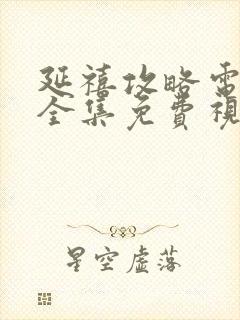 延禧攻略電
全集免費視
星空虛落